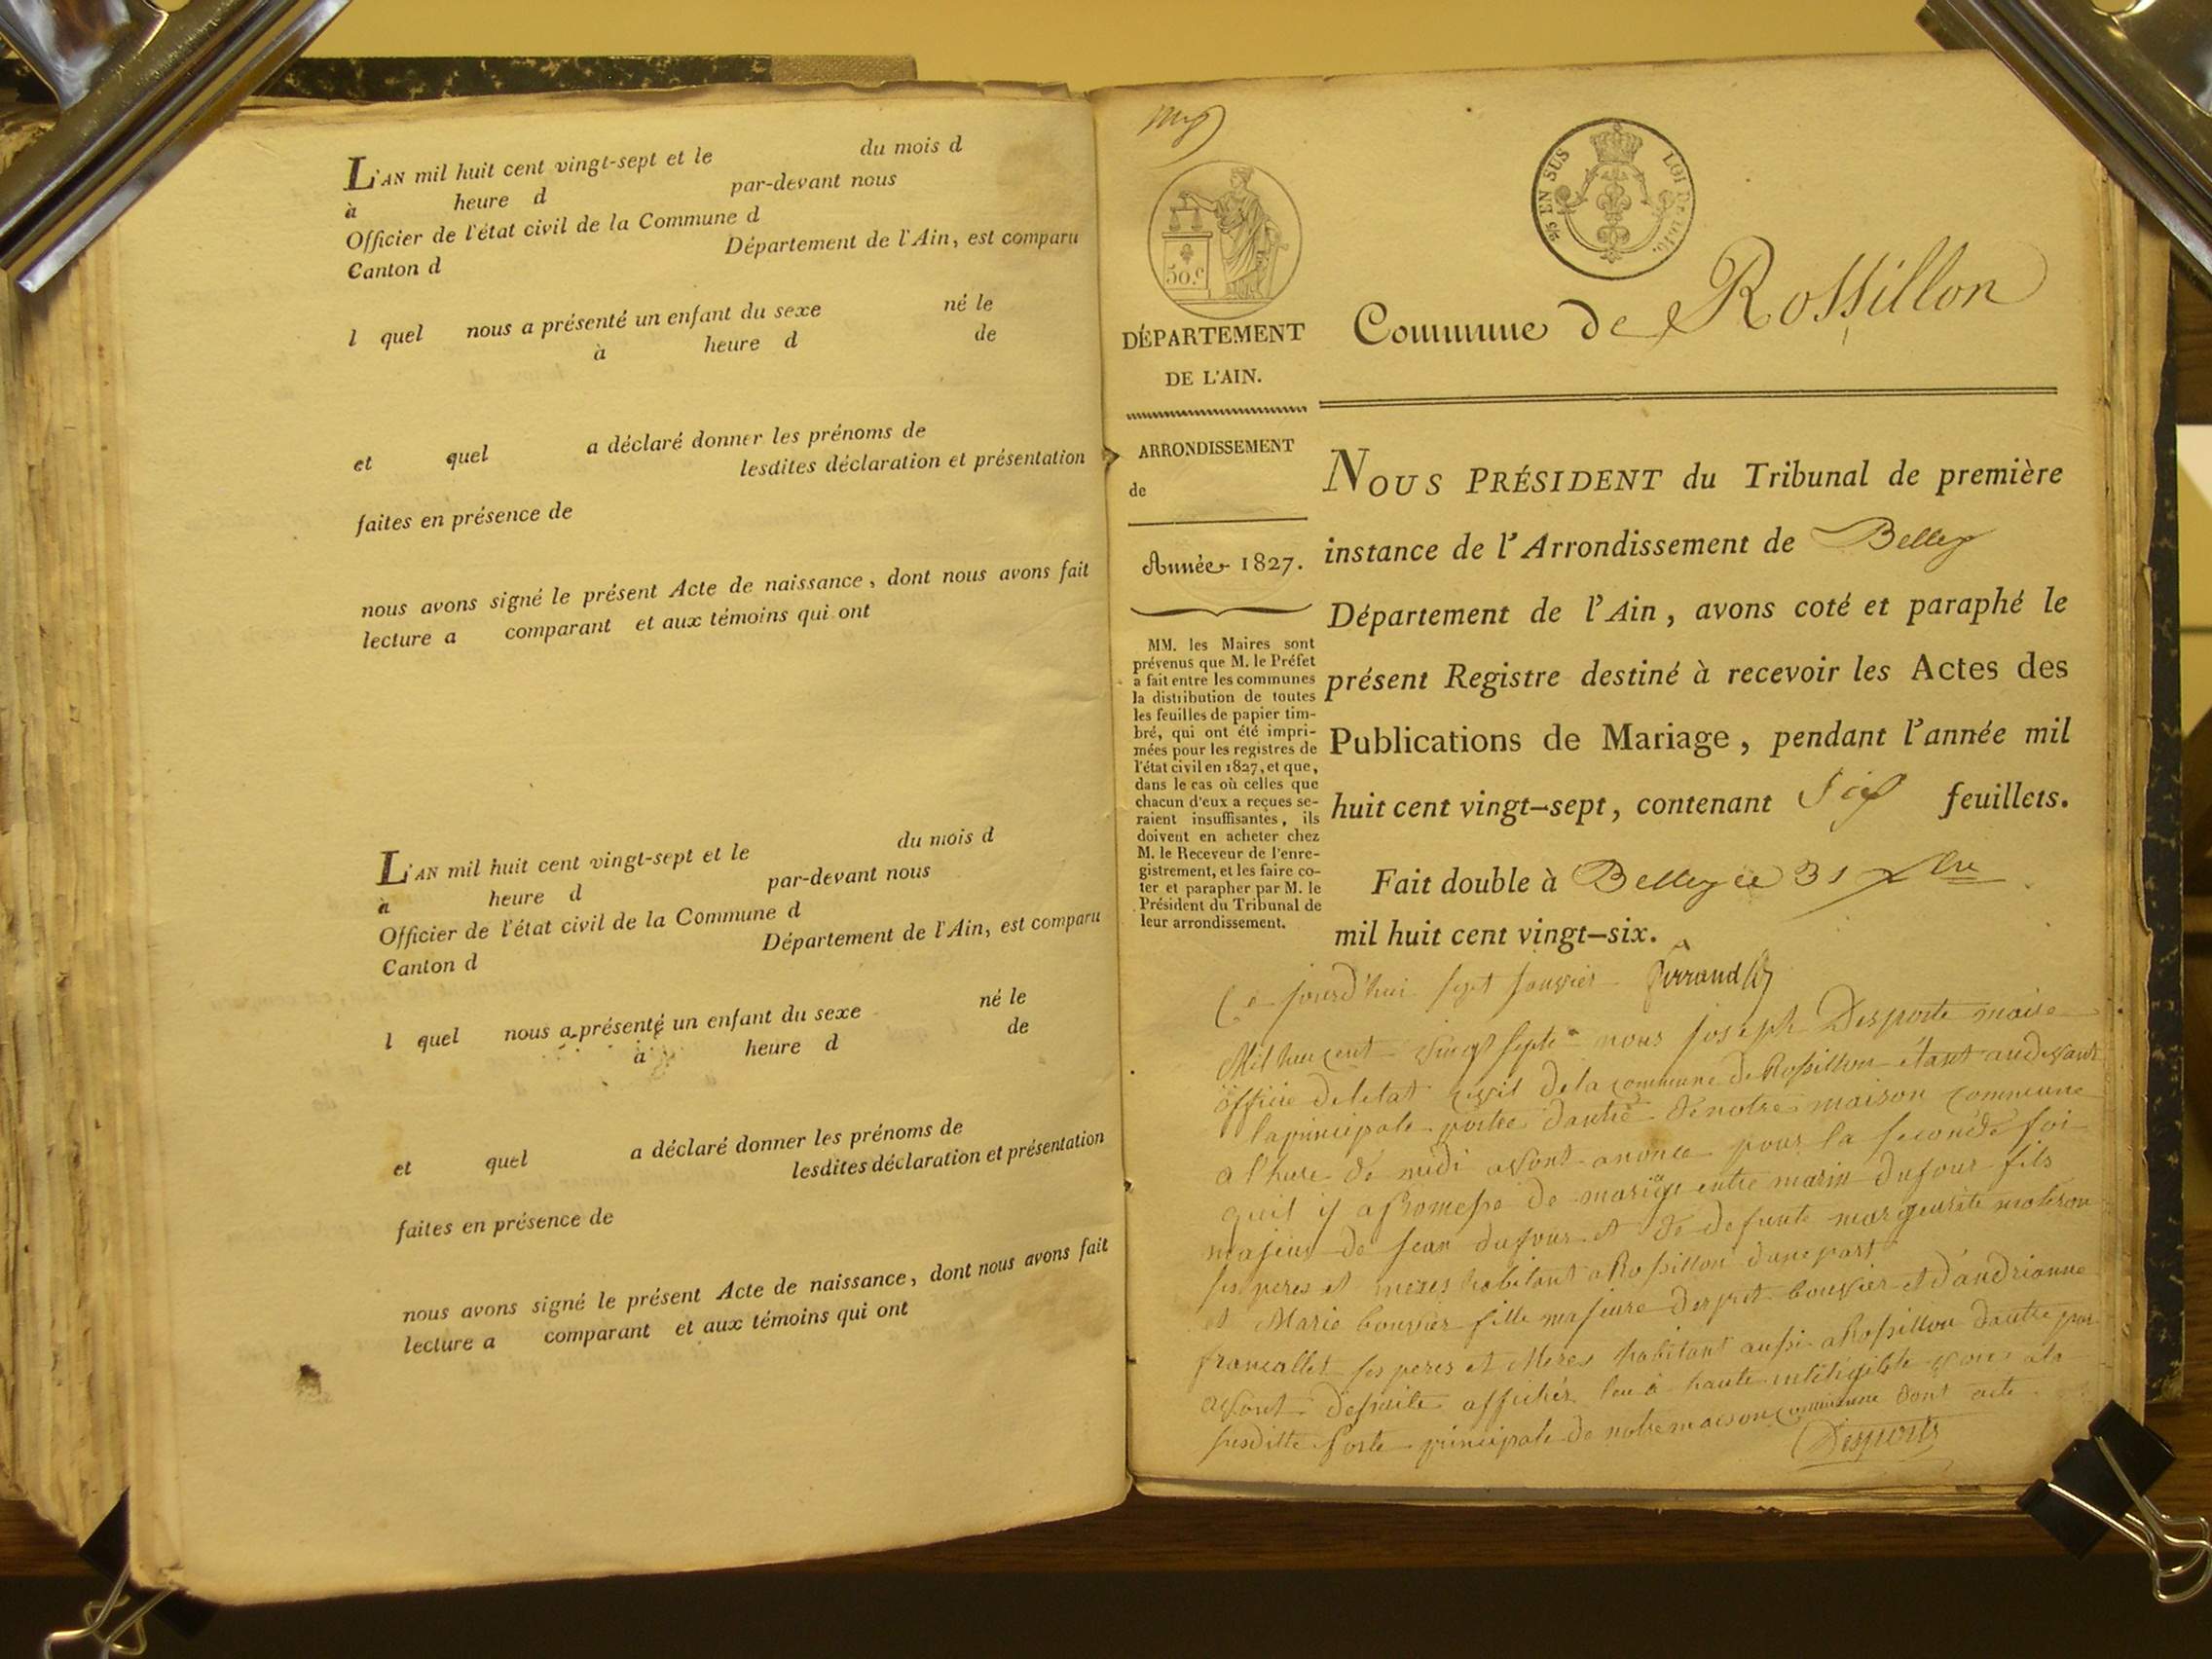 L'AN mil huit cent vingt-sept et le du mois d
à heure d par-devant nous
Officier de l'état civil de la Commune d
Canton d Département de l'Ain, est comparu
l quel nous a présenté un enfant du sexe né le
à heure d de
et quel a déclaré donner les prénoms de
lesdites déclaration et présentation
faites en présence de
nous avons signé le présent Acte de naissance, dont nous avons fait
lecture a comparant et aux témoins qui ont
L'AN mil huit cent vingt-sept et le du mois d
à heure d par-devant nous
Officier de l'état civil de la Commune d
Canton d Département de l'Ain, est comparu
l quel nous a présenté un enfant du sexe né le
à heure d de
et quel a déclaré donner les prénoms de
lesdites déclaration et présentation
faites en présence de
nous avons signé le présent Acte de naissance, dont nous avons fait
lecture a comparant et aux témoins qui ont
50.c
25 EN SUS LOI DE
DÉPARTEMENT
DE L'AIN.
ARRONDISSEMENT
de
Année 1827.
MM. les Maires sont
prévenus que M. le Préfet
a fait entre les communes
la distribution de toutes
les feuilles de papier tim-
bré, qui ont été impri-
mées pour les registres de
l'état civil en 1827, et que,
dans le cas où celles que
chacun d'eux a reçues se-
raient insuffisantes, ils
doivent en acheter chez
M. le Receveur de l'enre-
gistrement, et les faire co-
ter et parapher par M. le
Président du Tribunal de
leur arrondissement.
Commune de Rossillon
NOUS PRÉSIDENT du Tribunal de première
instance de l'Arrondissement de Belley
Département de l'Ain, avons coté et paraphé le
présent Registre destiné à recevoir les Actes des
Publications de Mariage, pendant l'année mil
huit cent vingt-sept, contenant Six feuillets.
Fait double à Belley le 31 Xbre
mil huit cent vingt-six.
Ce jourd'hui sept janvier
Mil huit cent vingt sept nous joseph Desporte maire
officie de letat civil de la commune de Rossillon étant au devant
la principale porte dantré de notre maison commune
a lhure de midi avont anonce pour la seconde foi
quil y a promesse de mariage entre marin dufour fils
majeur de jean dufour et de defunte margeurite
ses peres et meres habitant a Rossillon dune part
et Marie bouvier fille majeure desprit bouvier et d'andrianne
francallet ses peres et Meres habitant aussi a Rossillon dautre par
avont desuite affichér leu à haute intéligible vois ala
susditte porte principale de notre maison commune dont acte
Desporte